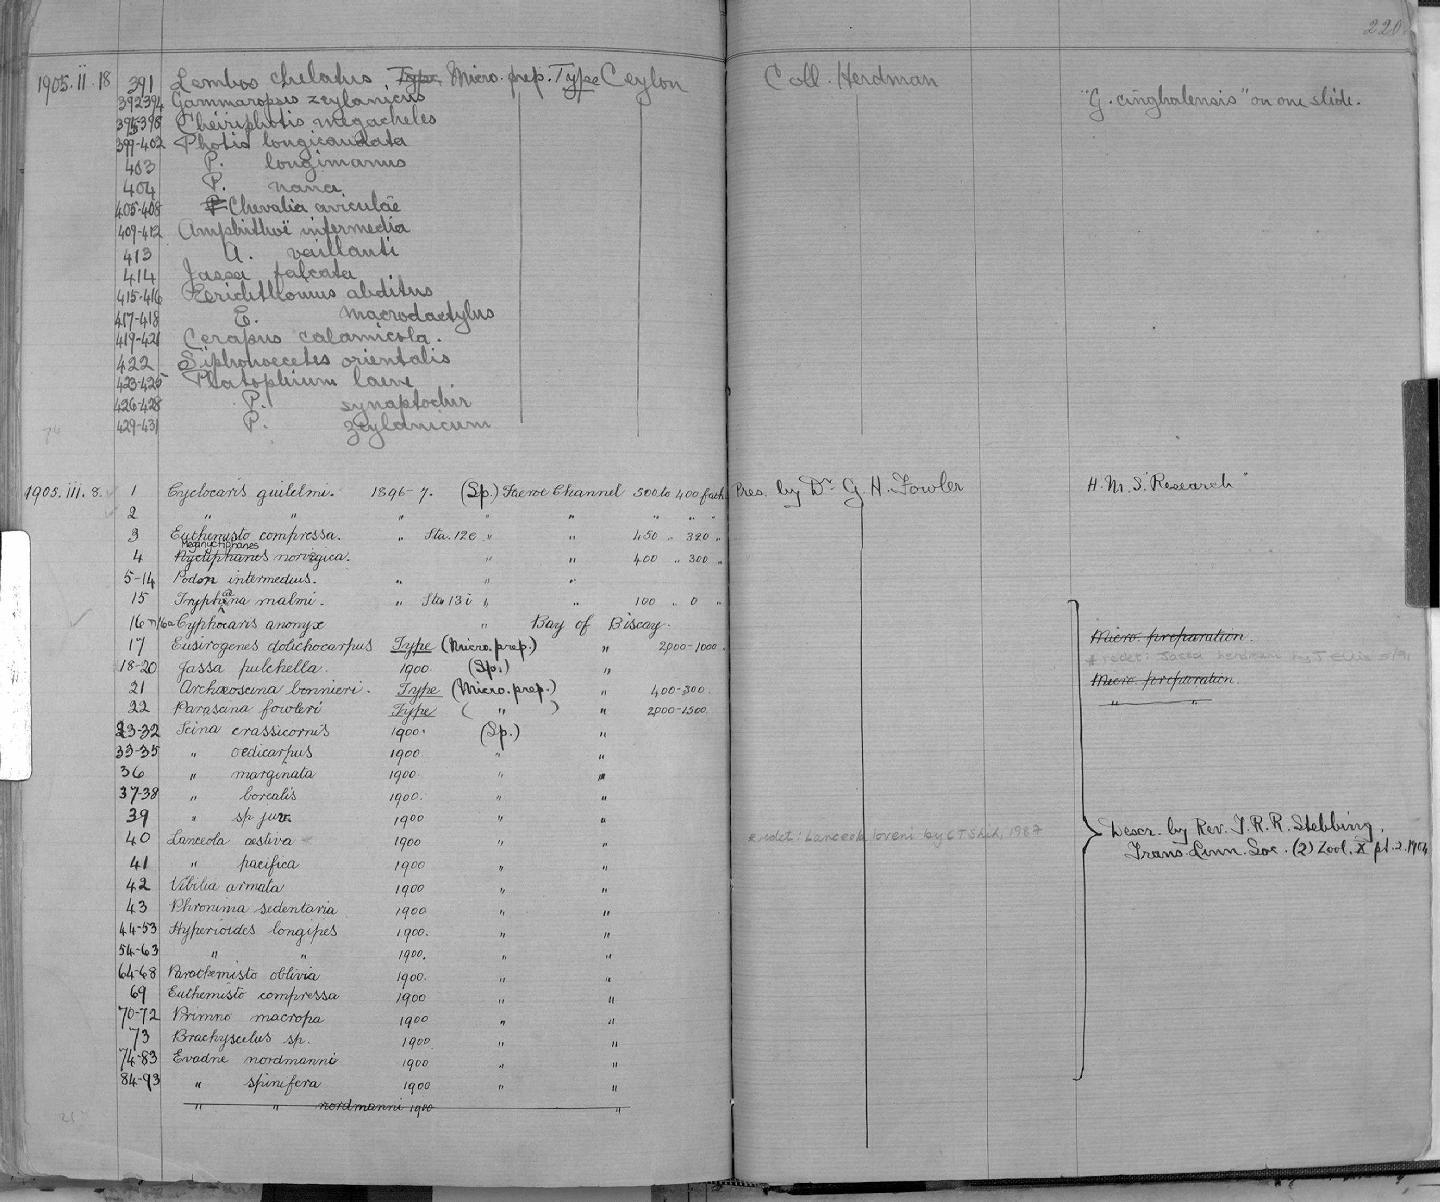 220
1905.II.18 391 Lembos chelatus Type Micro. prep. Type Ceylon Coll. Herdman
392-394 Gammaropsis zeylanicus "G. cinghalensis" on one slide.
395-398 Cheiriphotis megacheles
399-402 Photis longicaudata
403 P. longimanus
404 P. nana
405-408 P. Chevalia aviculae
409-412 Amphithoë intermedia
413 A. vaillanti
414 Jassa falcata
415-416 Ericthonius abditus
417-418 E. macrodactylus
419-421 Cerapus calamicola.
422 Siphonoecetes orientalis
423-425 Platophium laeve
426-428 P. synaptochir
429-431 P. zeylanicum
1905.iii.8. 1 Cyclocaris guilelmi. 1896-7. (Sp.) Faeroe Channel 500 to 400 fath. Pres. by Dr. G. H. Fowler H.M.S. "Research"
2 " " " " " " " "
3 Euthemisto compressa. " Sta. 12c " " 450 " 320 "
Meganyctiphanes
4 Nyctiphanes norvegica. " " 400 " 300 "
5-14 Podon intermedius. " " "
15 Tryphana malmi. " Sta 13i " " 100 " 0 "
16 Cyphocaris anonyx " Bay of Biscay.
17 Eusirogenes dolichocarpus Type (Micro. prep.) " 2000-1000. Micro. preparation.
18-20 Jassa pulchella. 1900. (Sp.) "
21 Archæoscina bonnieri. Type (Micro. prep.) " 400-300. Micro. preparation.
22 Parascina fowleri Type ( " ) " 2000-1500. " "
23-32 Scina crassicornis 1900. (Sp.) "
33-35 " oedicarpus 1900 " "
36 " marginata 1900 " "
37-38 " borealis 1900. " "
39 " sp juv. 1900 " "
40 Lanceola aestiva 1900 " " redet: Lanceola loveni by C T Shih, 1987
Descr. by Rev. T. R. R. Stebbing,
Trans. Linn. Soc. (2) Zool. X pt. 2. 1904
41 " pacifica 1900 " "
42 Vibilia armata 1900 " "
43 Phronima sedentaria 1900 " "
44-53 Hyperioides longipes 1900. " "
54-63 " " 1900. "
64-68 Parathemisto oblivia 1900. " "
69 Euthemisto compressa 1900 " "
70-72 Primno macropa 1900 " "
73 Brachyscelus sp. 1900. " "
74-83 Evadne nordmanni 1900 " "
84-93 " spinifera 1900 " "
" " nordmanni 1900 "